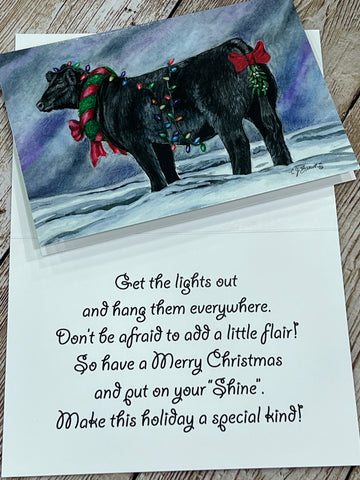 Get the lights out
and hang them everywhere.
Don't be afraid to add a little flair!
So have a Merry Christmas
and put on your "Shine".
Make this holiday a special kind!